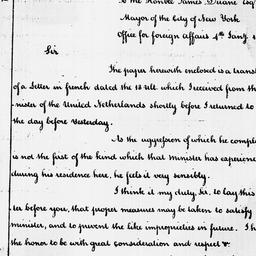 To the Honble James Duane Esq
Mayor of the City of New York
Office for foreign Affairs 4th Jany
Sir
The paper herewith enclosed is a transl
of a Letter in french dated the 18 ult. which I received from th
nister of the United Netherlands shortly before I returned to
the day before Yesterday.
As the aggression of which he comple
is not the first of the kind which that minister has experienc
during his residence here, he feels it very sensibly.
I think it my duty, Sir, to lay this
ter before you, that proper measures may be taken to satisfy
minister, and to prevent the like improprieties in future. I h
the honor to be with great consideration and respect &.